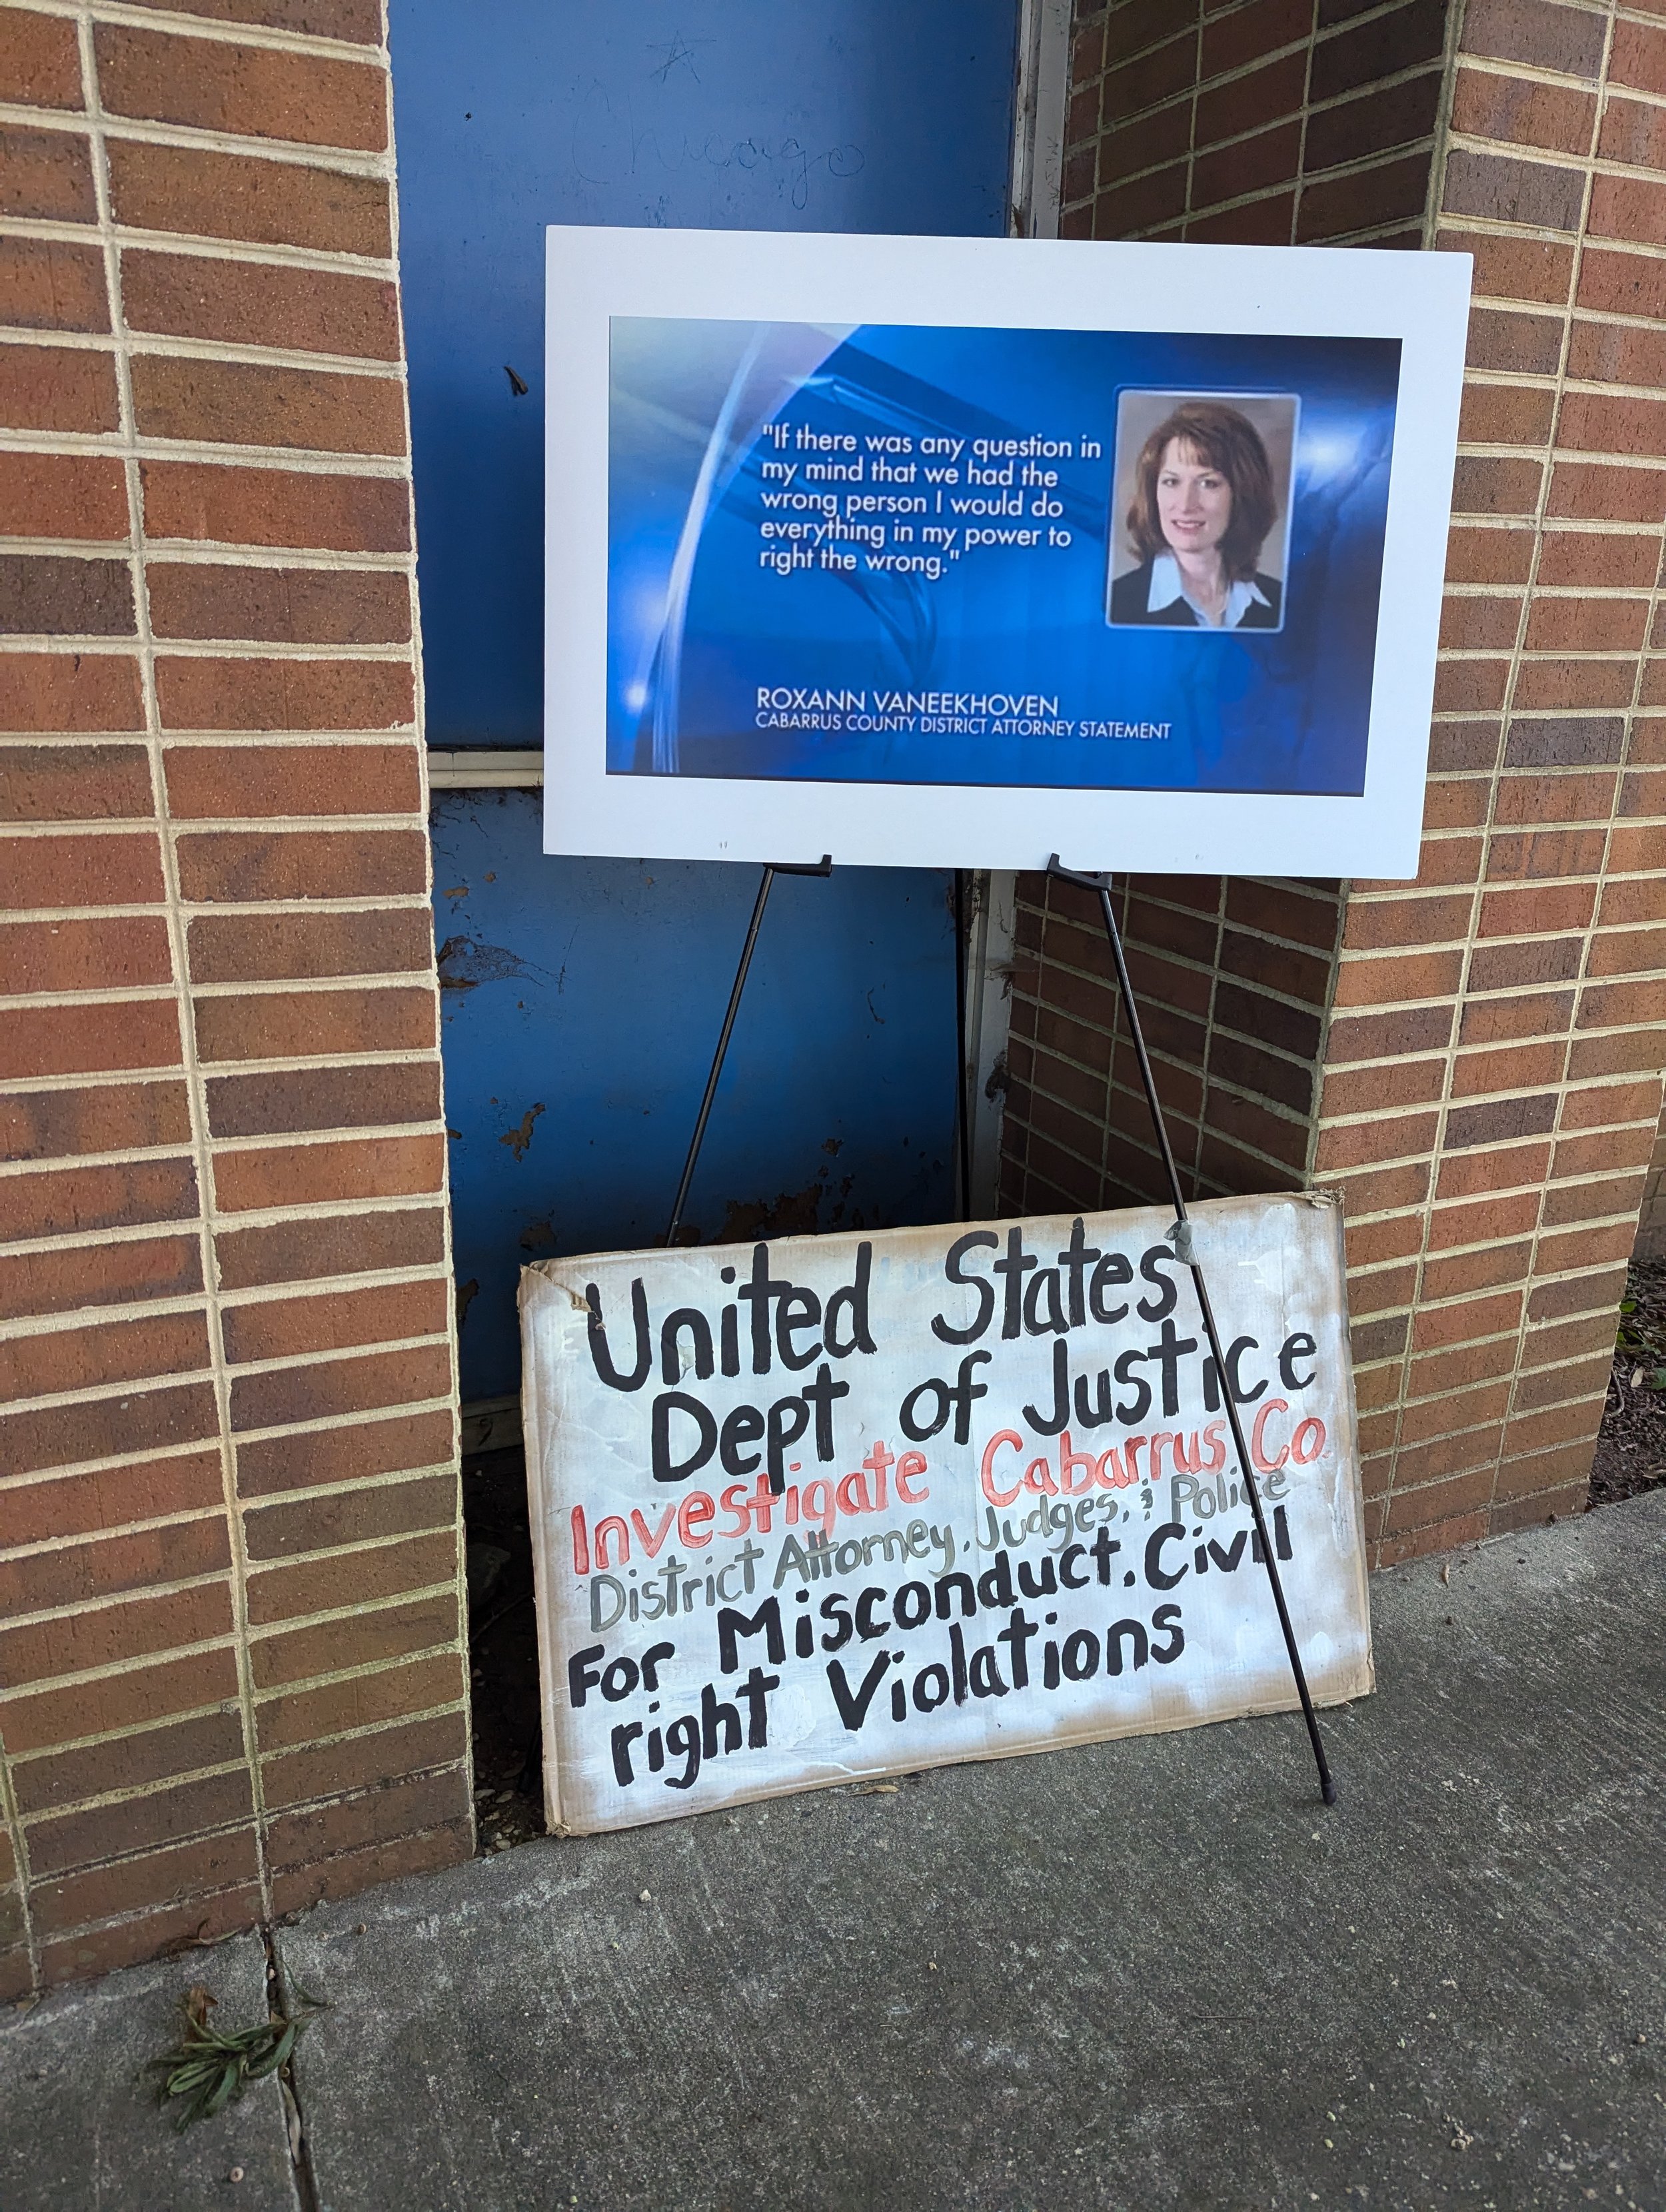 Chicago
"If there was any question in
my mind that we had the
wrong person I would do
everything in my power to
right the wrong."
ROXANN VANEEKHOVEN
CABARRUS COUNTY DISTRICT ATTORNEY STATEMENT
United States
Dept of Justice
Investigate Cabarrus Co.
District Attorney, Judges, & Police
For Misconduct. Civil
right Violations